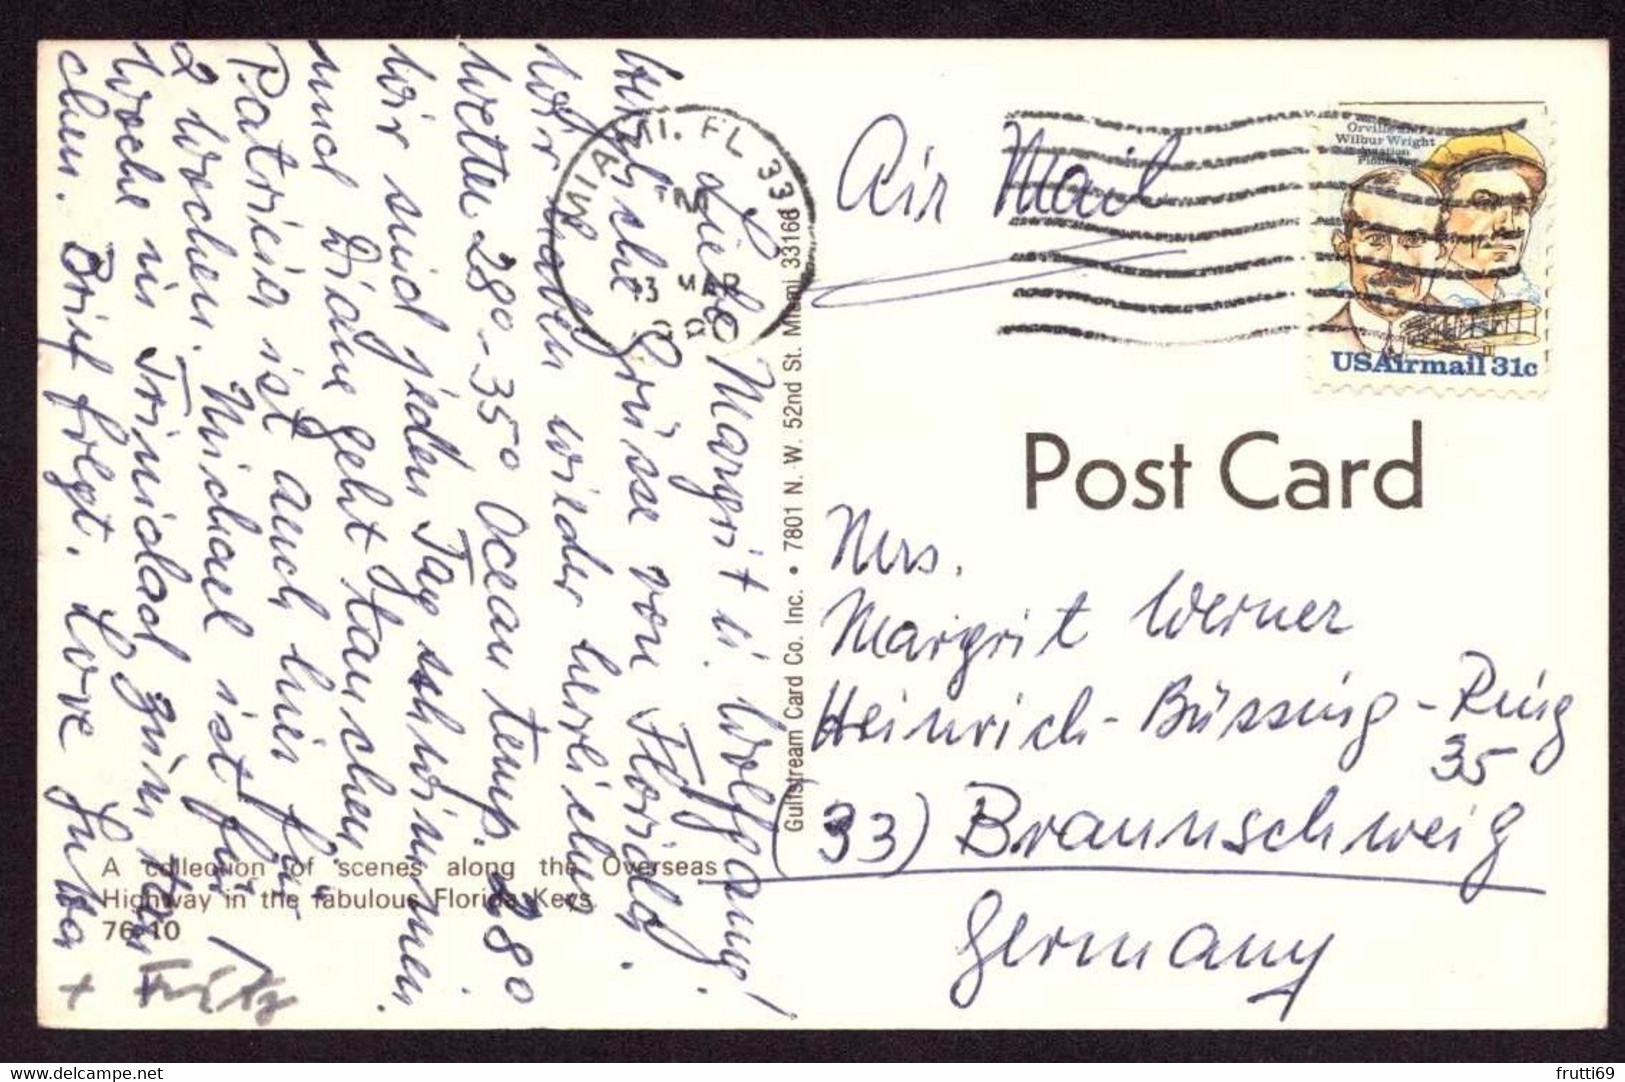 Liebe Margrit u. Wolfgang!
Herzliche Grüsse von Florida.
Wir haben wieder herrliches
Wetter 28°-35° Ocean temp. 28°
Wir sind jeden Tag schwimmen
und Diane geht tauschen
Patricia ist auch hier für
2 Wochen. Michael ist für 1
Woche in Trinidad zum
chen. Brief folgt. Love
Fritz
A collection of scenes along the Overseas
Highway in the fabulous Florida Keys.
76-10
Gulfstream Card Co. Inc. • 7801 N. W. 52nd St. Miami 33166
MIAMI. FL 331
3 MAR
Air Mail
Orville and
Wilbur Wright
Aviation
Pioneers
USAirmail 31c
Post Card
Mrs.
Margrit Werner
Heinrich-Büssing-Ring
35
(33) Braunschweig
Germany
www.delcampe.net
frutti69